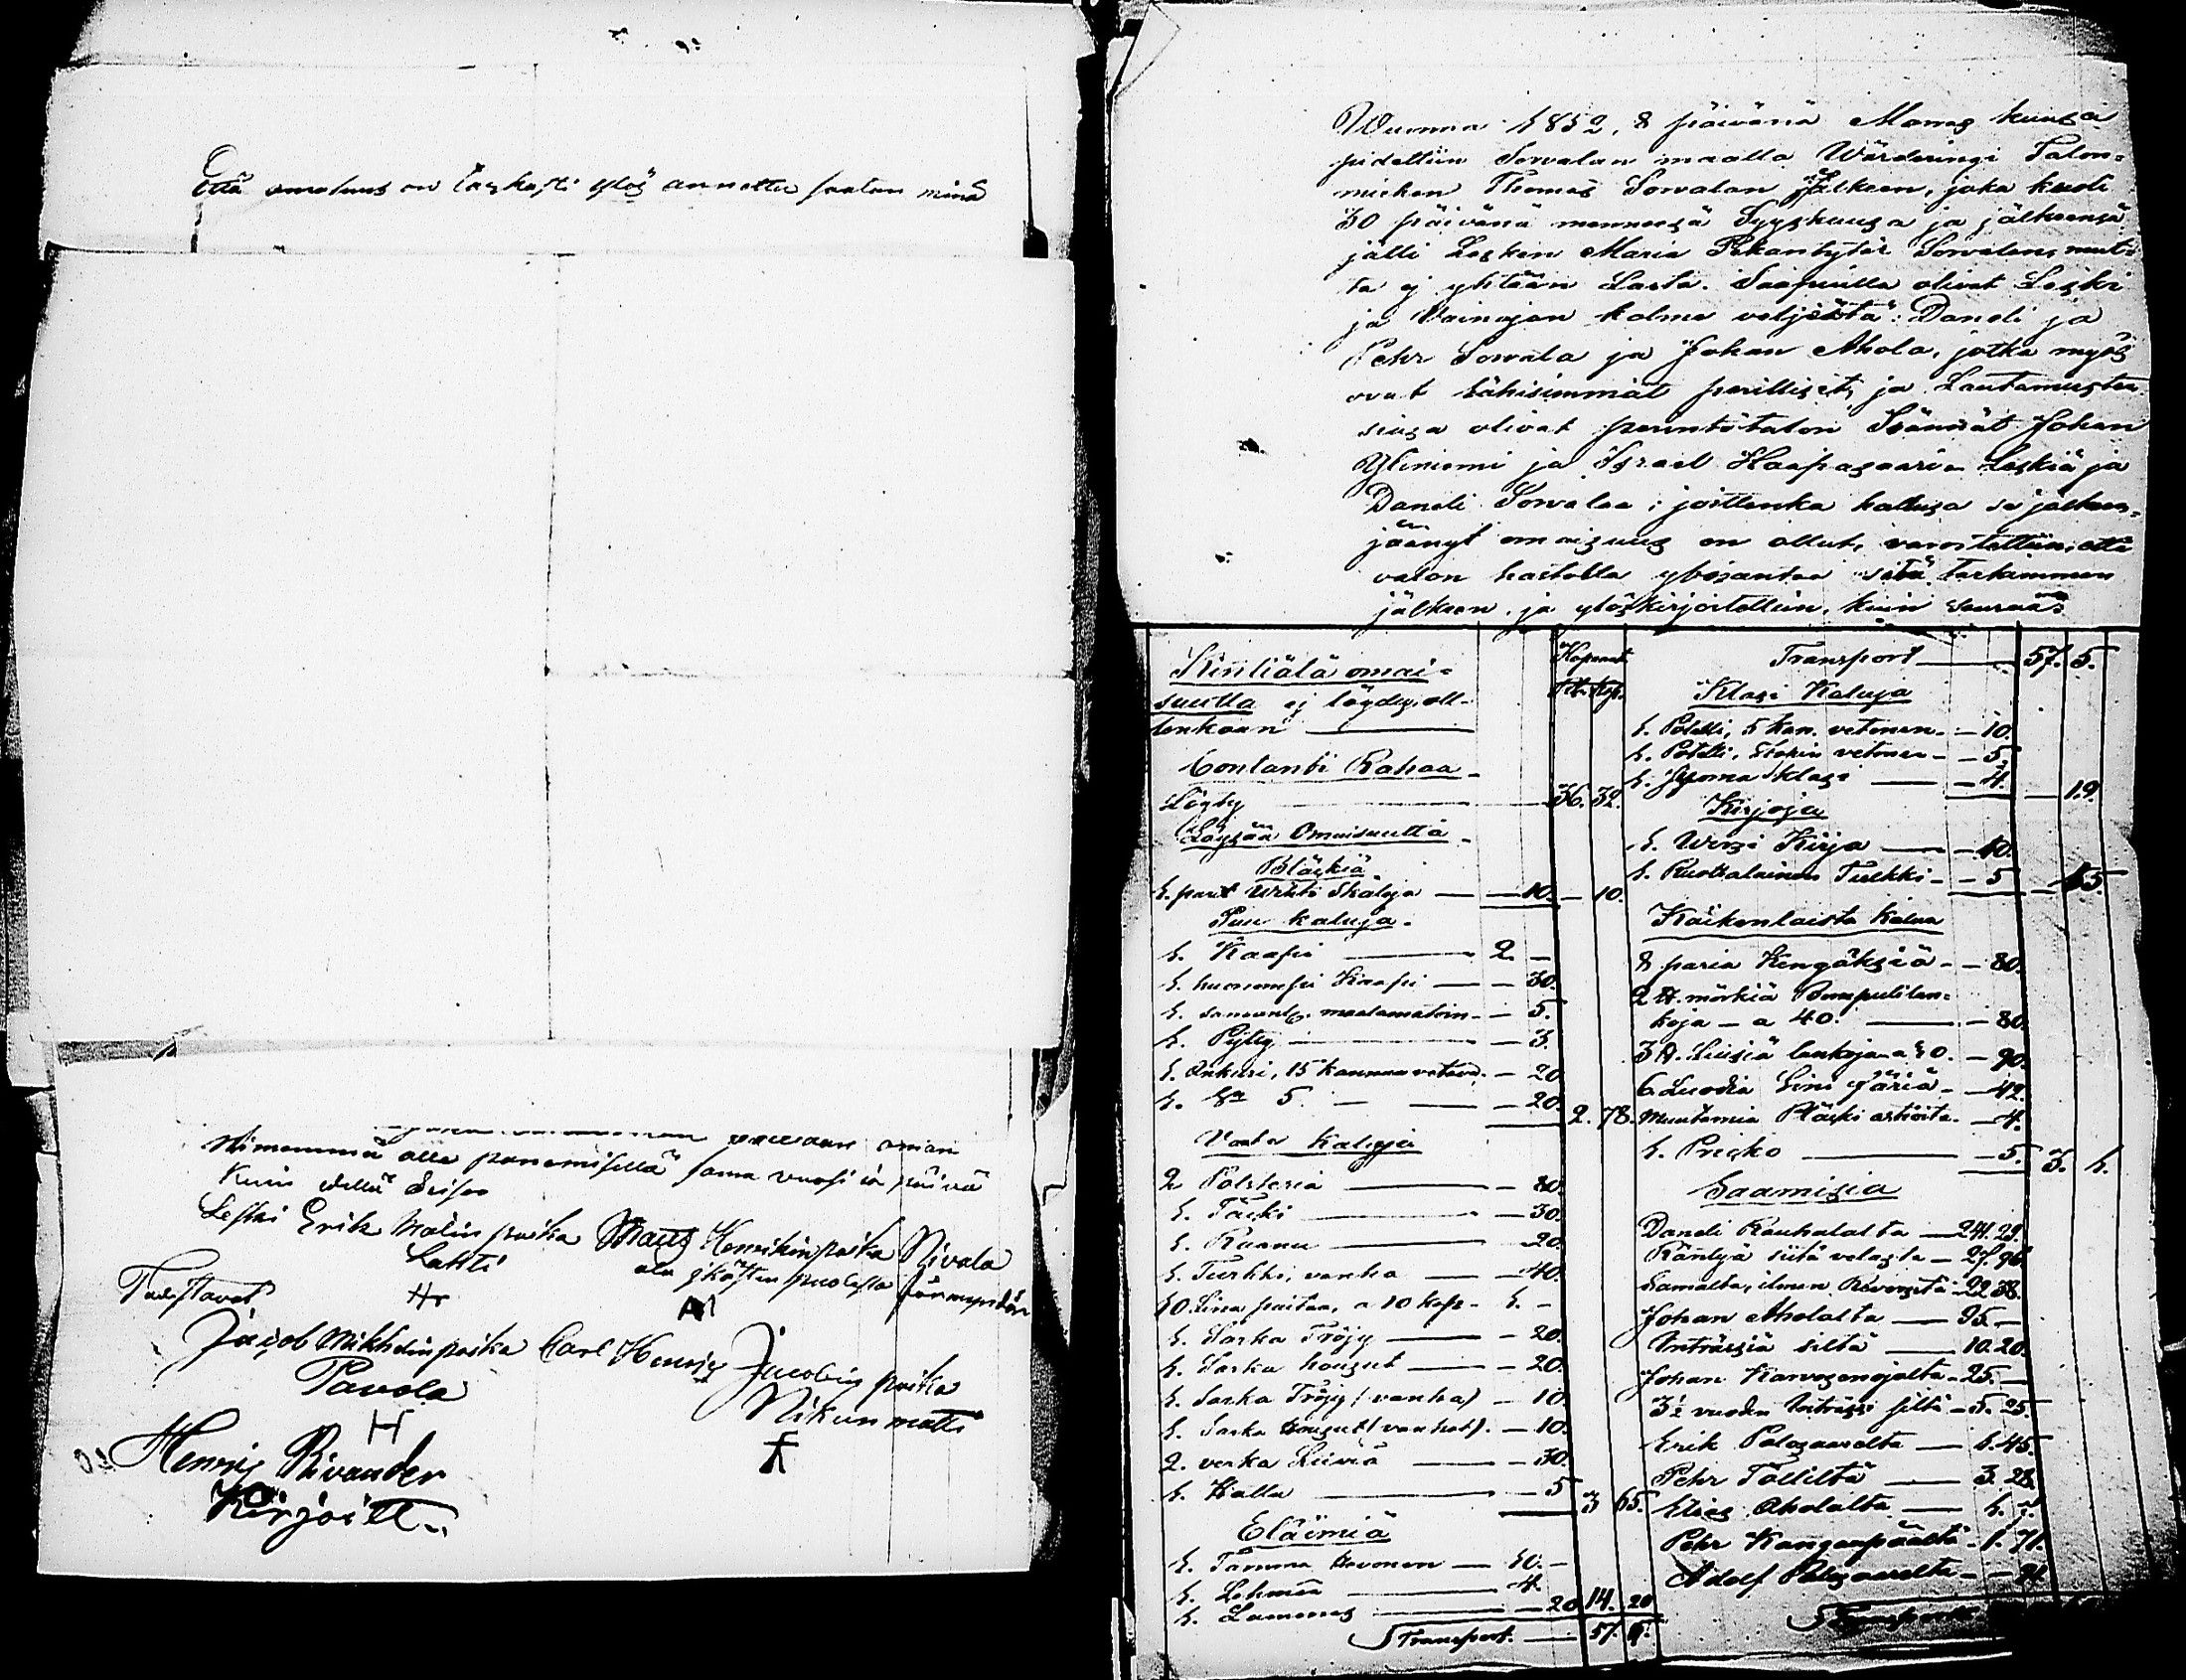 Että omaisuus on ylös annettu mina
nimemmä alle panemisella sama vuosi ia päivä
Kuin
Leski Erik Malin poika Matts Henrikin poika Nivala
Lahti
Todistavat
Jacob Mikkelin poika Carl Henrig Jacobin poika
Pavola
Nikun matti
H
Henrig Rivander
Kirjoitt.
Wuonna 1852, 8 päivänä Marras kuusa
pidettiin Sorvalan maalla Wärderingi Talon-
miehen Thomas Sorvalan jälkeen, joka kuoli
30 päivänä menneesä Syyskuusa ja jälkeensä
jätti Lesken Maria Pekantytär Sorvalan, mut-
ta ej yhtään Lasta. Saapuilla olivat Leski
ja Vainajan kolme veljestä: Daneli ja
Pehr Sorvala ja Johan Ahola, jotka myös
ovat lähisimmät perilliset, ja
olivat perintötalon Isännät Johan
Yliniemi ja Israel Haapasaari. Leskiä ja
Daneli Sorvalaa, joittenka hallusa se jälkeen-
jäänyt omaisuus on ollut, varoitettiin, että
valan haastolla ylösantaa sitä tarkimman
jälkeen, ja ylöskirjoitettiin, kuin seuraa:
Kiintiätä omai-
suutta ej löydy, oll-
lenkaan
Contanti Rahaa
Löyty 36. 32.
Löysää Omaisuutta
Bläkiä
1. par 10. 10.
Puu kaluja.
1. Kaapii 2. -
1. huonompi Kaapi 30.
1. maalamatoin 5.
1. Pytty 3.
1. Ankuri, 15 kannua vetävä 20
1. 5. 20. 2. 78.
Vaate Kaluja
2 Polsteria 80.
1. Täcki 30.
1. Raanu 20.
1. Turkki, vanha 40.
10. Lina paitaa, a 10 kop. 1. -
1. Sarka Tröjy 20.
1. Sarka housut 20.
1. Sarka Tröjy (vanha) 10
1. Sarka housut (vanhat). 10.
2. verka Liiviä 30.
1. Hattu 5 3 65.
Eläimiä
1. Tamma Hevonen 10. -
1. Lehmä 4.
1. Lammas 20 14. 20
Transport. 57. 5.
Transport 57. 5.
Klasi Kaluja
1. Potelli, 5 kan. vetonen. 10.
1. Potelli, vetonen 5.
1. Klasi 4. 19.
Kirjoja
1. Wirsi Kirja 10.
1. Ruotsalainen Tulkki 5 15.
Kaikenlaista kalua
8 paria Kengäksiä 80.
2 ℔. märkiä Pumpulilan-
koja a 40. 80.
3 ℔. lankoja a 30. 90.
6 Luodia 42.
Muutamia Pläki astioita 4.
1. Presko 5. 3. 1.
Saamisia
Daneli Rauhalalta 241. 29.
Räntyä siitä velasta 27. 96
Samalta, ilman 22 38.
Johan Aholalta 95. -
Inträssiä siltä 10. 20.
Johan Karvosenojalta 25. -
3½ vuoden Inträssi siltä 5. 25.
Erik Palosaarelta 1. 45.
Pehr Tallilta 3. 28.
Elias Aholalta 1.
Pehr Kangaspäältä 1. 71.
Adolf Palosaarelta
Transport